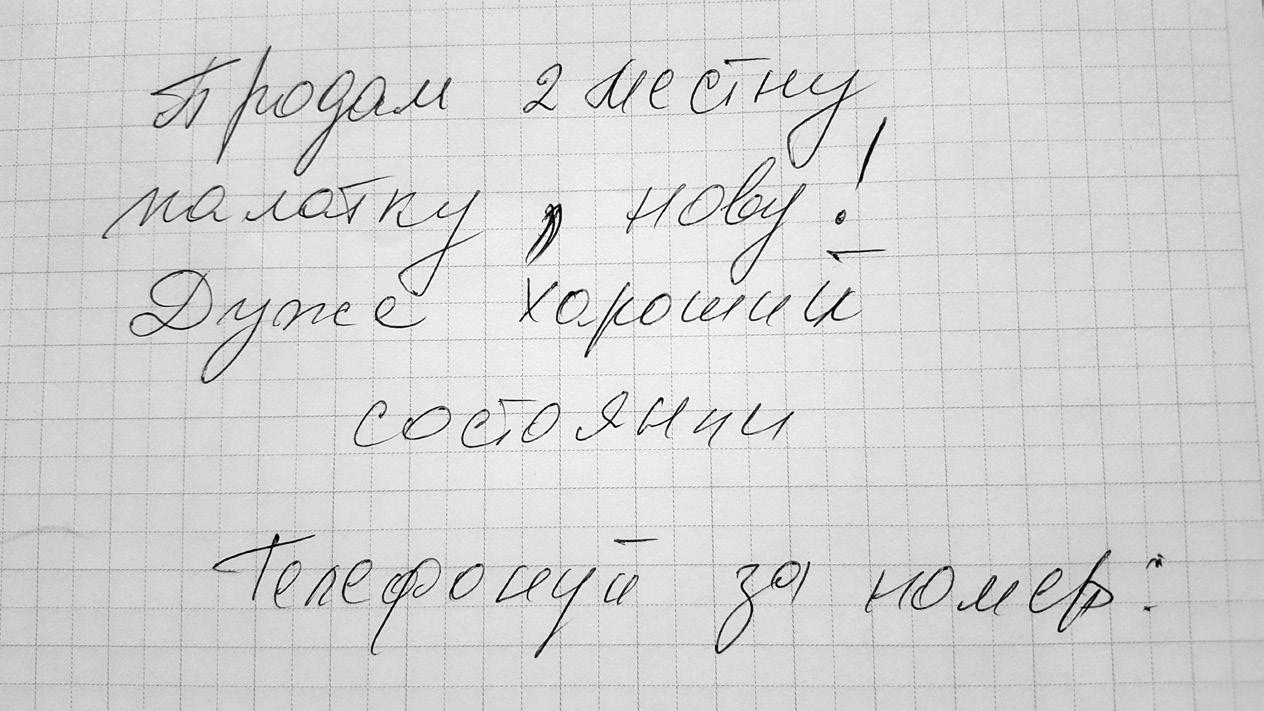 Продам 2 местну
палатку, нову!
Дуже хороший
состоянии
Телефонуй за номер: